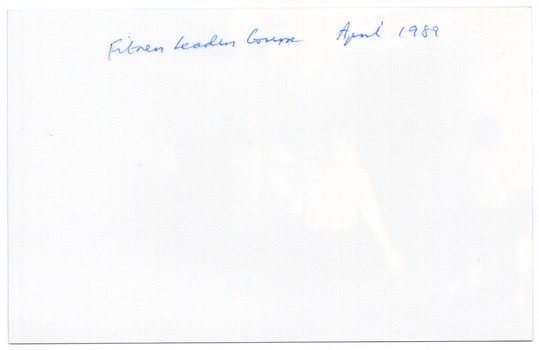 Fitness Leaders Course April 1989